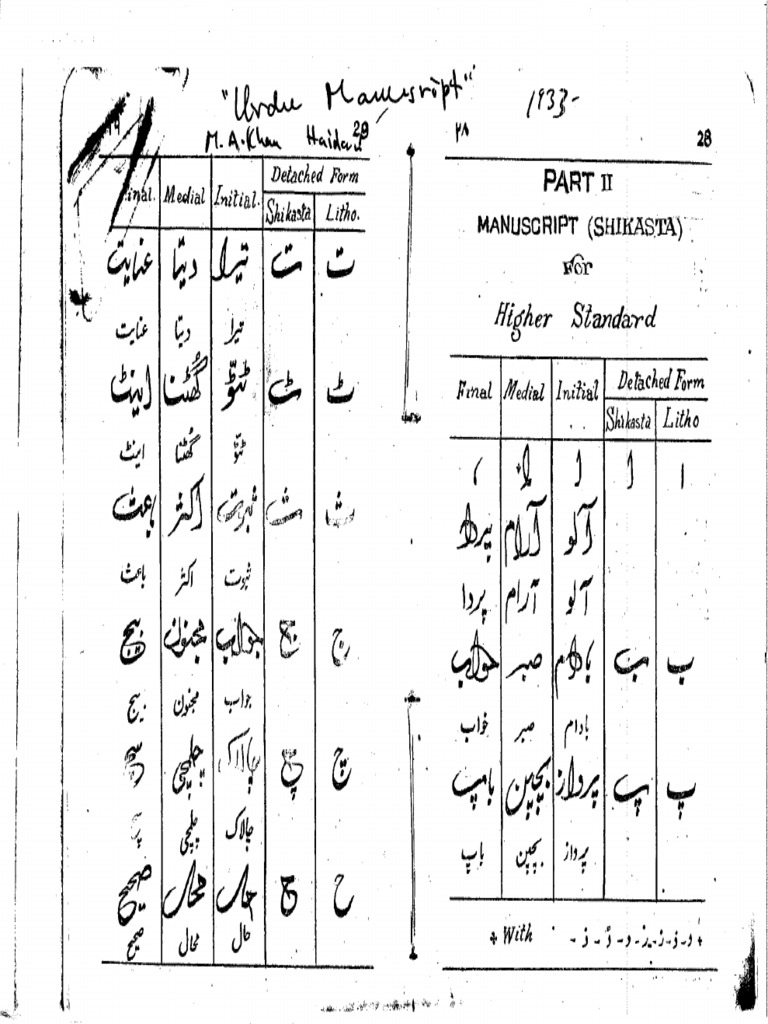 "Urdu Manuscript"
1933-
M. A. Khan Haidari
29
۲۸
28
PART II
MANUSCRIPT (SHIKASTA)
FOR
Higher Standard
Final Medial Initial Detached Form
Shikasta Litho
ا ا ا
آلو آرام پردا
آلو آرام پردا
ب ب بادام صبر خواب
بادام صبر خواب
پ پ پرواز بچپن باپ
پرواز بچپن باپ
+ With
Final. Medial Initial. Detached Form
Shikasta Litho.
ت ت تیرا دیتا عنایت
تیرا دیتا عنایت
ٹ ٹ ٹٹّو گُھٹنا اینٹ
ٹٹّو گُھٹنا اینٹ
ث ث ثبوت اکثر باعث
ثبوت اکثر باعث
ج ج جواب مجنون بیج
جواب مجنون بیج
چ چ چالاک چلمچی
چالاک چلمچی
ح ح حال محال صحیح
حال محال صحیح